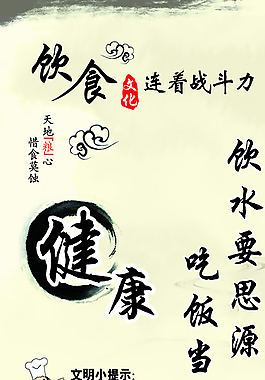 饮食文化连着战斗力
天地「粮」心
惜食莫蚀
饮水要思源
吃饭当
健康
文明小提示: